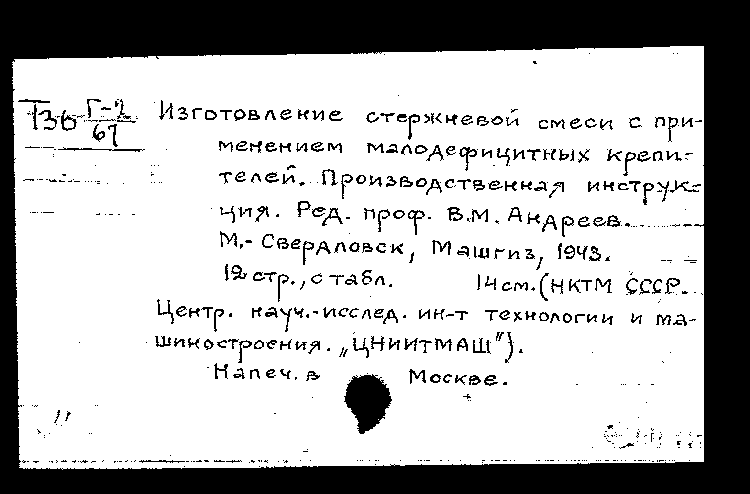 Т36 Г-2
67
Изготовление стержневой смеси с при-
менением малодефицитных крепи-
телей. Производственная инструк-
ция. Ред. проф. В.М. Андреев.
М.- Свердловск, Машгиз, 1943.
12 стр., с табл. 14 см. (НКТМ СССР.
Центр. науч.-исслед. ин-т технологии и ма-
шиностроения. „ЦНИИТМАШ").
Напеч. в Москве.